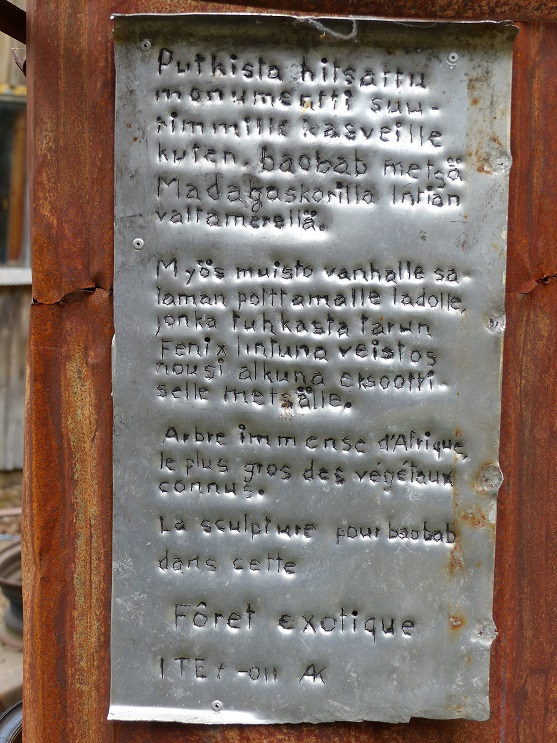 Putkista hitsattu
monumentti suu-
rimmille kasveille
kuten, baobab metsä
Madagaskarilla Intian
valtamerellä.
Myös muisto vanhalle sa-
laman polttamalle ladolle,
jonka tuhkasta tarun
Fenix lintuna veistos
nousi alkuna eksootti-
selle metsälle.
Arbre immense d'Afrique,
le plus gros des végétaux
connus.
La sculpture pour baobab
dans cette
Fôret exotique
AK